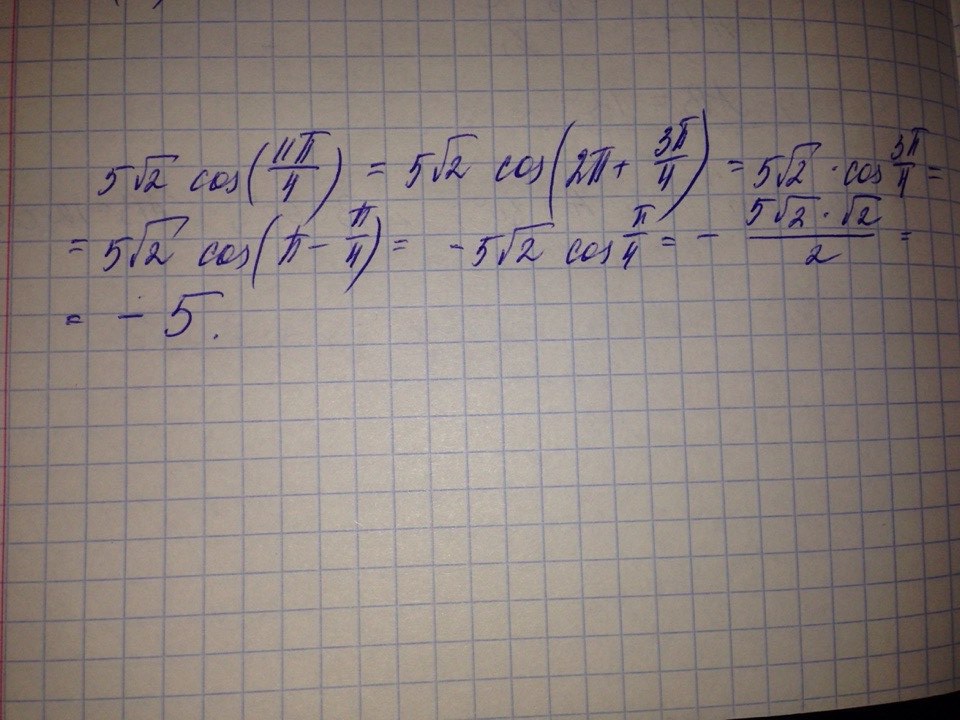 5√2 cos(11π/4) = 5√2 cos(2π + 3π/4) = 5√2 · cos 3π/4 =
= 5√2 cos(π - π/4) = -5√2 cos π/4 = - 5√2 · √2/2 =
= - 5.